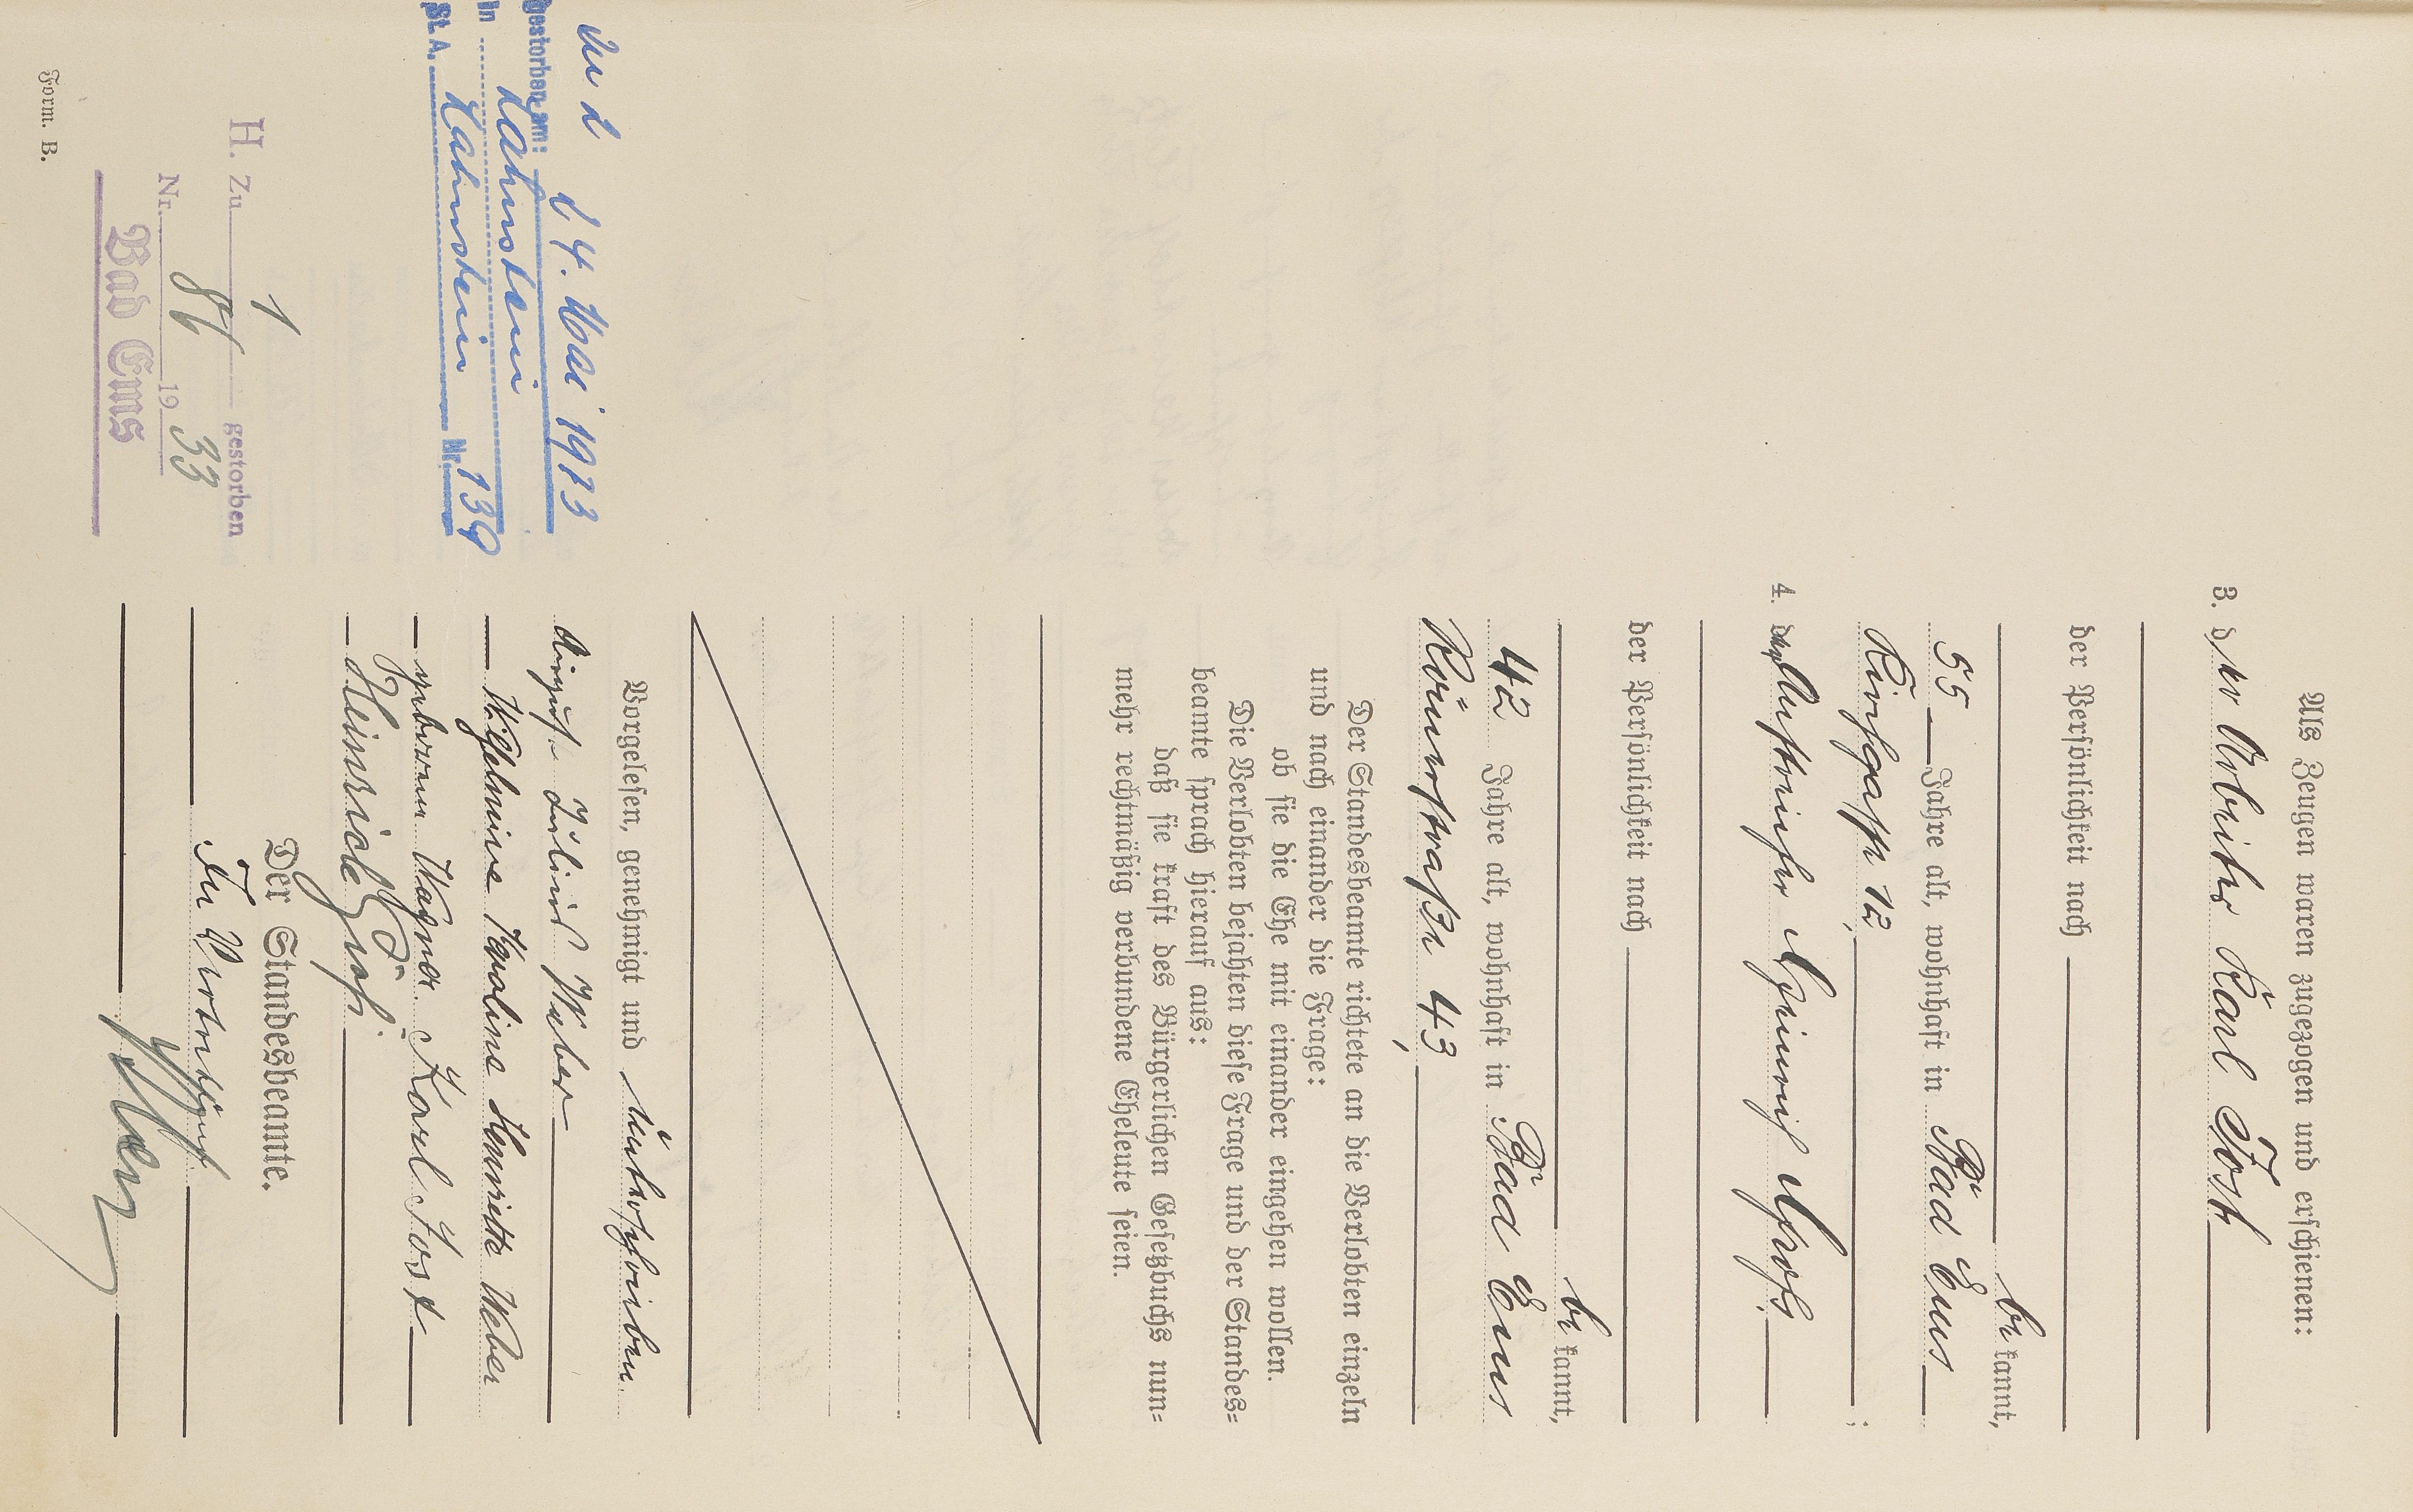 Als Zeugen waren zugezogen und erschienen:
3. der Arbeiter Karl Jost
der Persönlichkeit nach
be kannt,
55 Jahre alt, wohnhaft in Bad Ems
Kirchgasse 12,
;
4. der Heinrich
der Persönlichkeit nach
be kannt,
42 Jahre alt, wohnhaft in Bad Ems
Römerstraße 43,
Der Standesbeamte richtete an die Verlobten einzeln
und nach einander die Frage:
ob sie die Ehe mit einander eingehen wollen.
Die Verlobten bejahten diese Frage und der Standes-
beamte sprach hierauf aus:
daß sie kraft des Bürgerlichen Gesetzbuchs nun-
mehr rechtmäßig verbundene Eheleute seien.
Vorgelesen, genehmigt und unterschrieben
Julius Weber
Wilhelmine Karoline Henriette Weber
geborene Wagner. Karl Jost
Heinrich
Der Standesbeamte.
In Vertretung
gestorben am: 24. Mai 1973
in Lahnstein
St. A. Lahnstein Nr. 139
H. Zu 1 gestorben
Nr. 86 19 33
Bad Ems
Form. B.